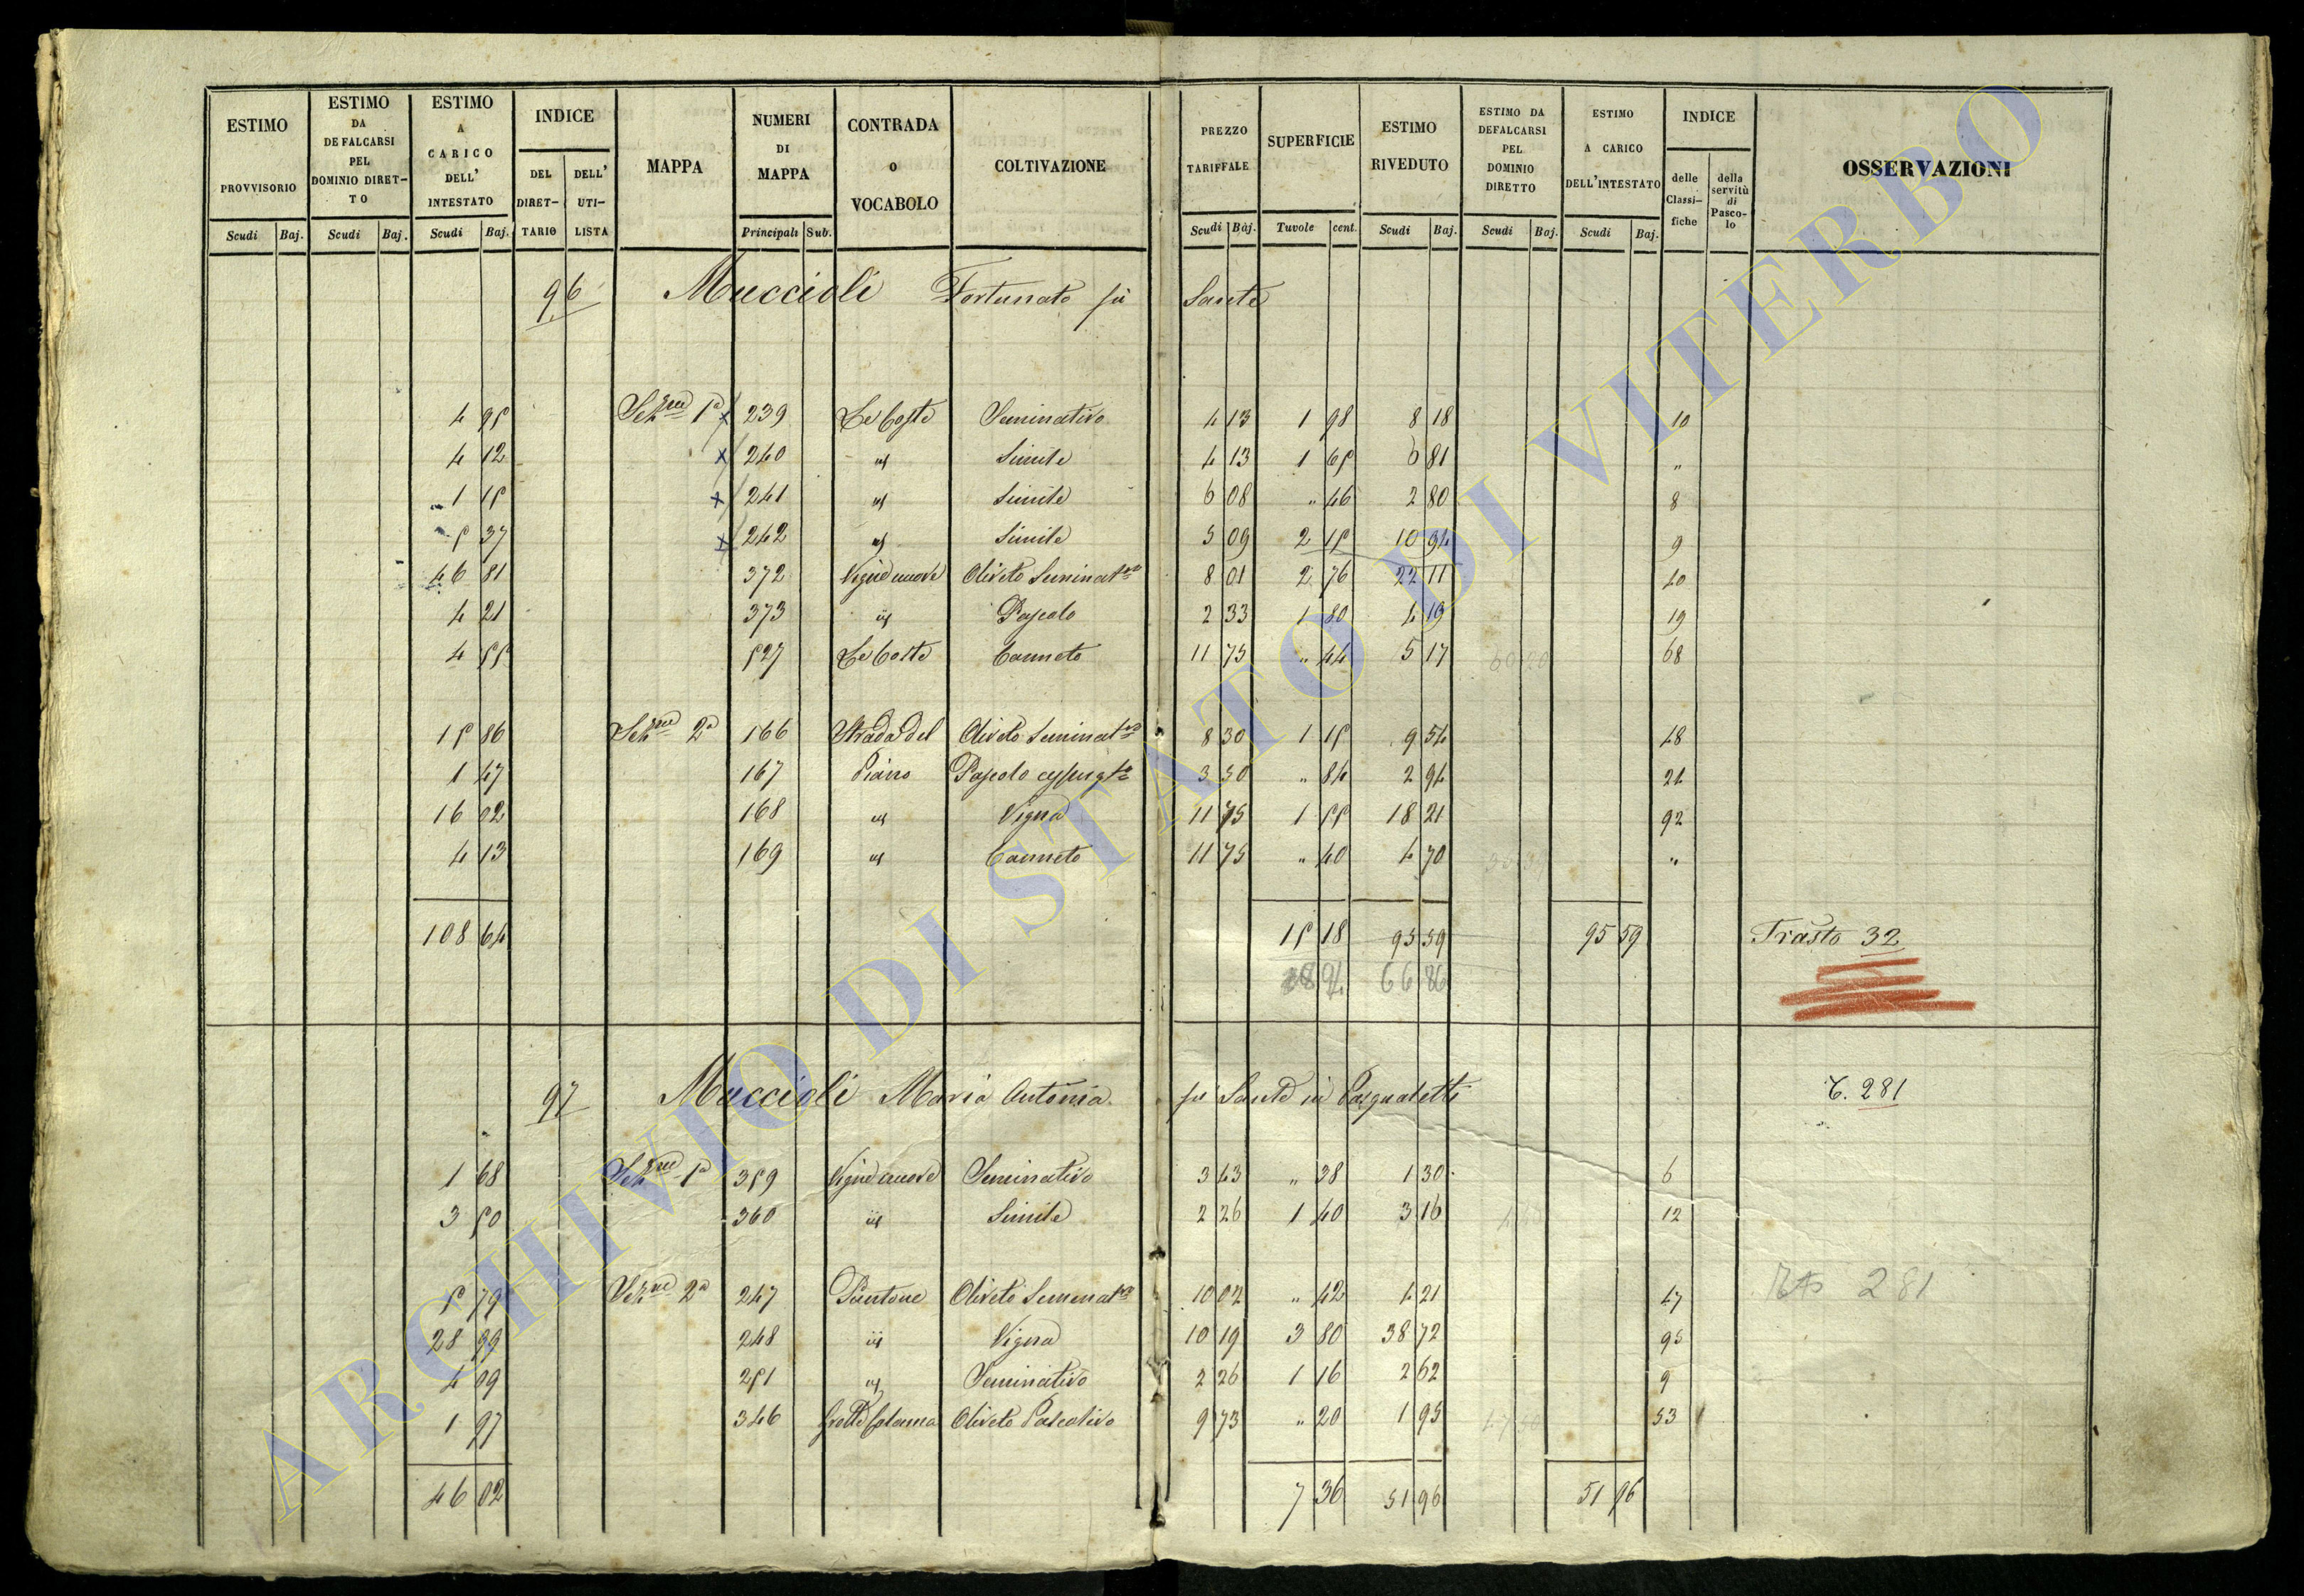 ESTIMO PROVVISORIO Scudi Baj.
ESTIMO DA DEFALCARSI PEL DOMINIO DIRET-TO Scudi Baj.
ESTIMO A CARICO DELL' INTESTATO Scudi Baj.
INDICE DEL DIRET-TARIO DELL' UTI-LISTA
MAPPA
NUMERI DI MAPPA Principali Sub.
CONTRADA O VOCABOLO
COLTIVAZIONE
PREZZO TARIFFALE Scudi Baj.
SUPERFICIE Tuvole cent.
ESTIMO RIVEDUTO Scudi Baj.
ESTIMO DA DEFALCARSI PEL DOMINIO DIRETTO Scudi Baj.
ESTIMO A CARICO DELL'INTESTATO Scudi Baj.
INDICE delle Classi-fiche della servitù di Pasco-lo
OSSERVAZIONI
96 Muccioli Fortunato fù Sante
4 95 Sezne 1a x 239 Le Coste Seminativo 4 13 1 98 8 18 10
4 12 x 240 id Simile 4 13 1 65 6 81 "
1 15 x 241 id Simile 6 08 " 46 2 80 8
5 37 x 242 id Simile 5 09 2 15 10 94 9
46 81 372 Vigne nuove Oliveto Seminatvo 8 01 2 76 22 11 40
4 21 373 id Pascolo 2 33 1 80 4 19 19
4 55 527 Le Coste Canneto 11 75 " 44 5 17 68
15 86 Sezne 2a 166 Strada del Oliveto Seminatvo 8 30 1 15 9 54 48
1 47 167 Piano Pascolo cespugto 3 50 " 84 2 94 24
16 02 168 id Vigna 11 75 1 55 18 21 92
4 13 169 id Canneto 11 75 " 40 4 70 "
108 64 15 18 95 59 95 59 Trasto 32
8 94 66 86
97 Muccioli Maria Antonia fù Sante in Pasqualetti T. 281
1 68 Sezne 1a 359 Vigne nuove Seminativo 3 43 " 38 1 30 6
3 50 360 id Simile 2 26 1 40 3 16 12
5 79 Sezne 2a 247 Puntone Oliveto Seminatvo 10 02 " 42 4 21 47
28 99 248 id Vigna 10 19 3 80 38 72 95
4 09 251 id Seminativo 2 26 1 16 2 62 9
1 97 346 Grotte Colonna Oliveto Pascolivo 9 73 " 20 1 95 53
281
46 02 7 36 51 96 51 96
ARCHIVIO DI STATO DI VITERBO